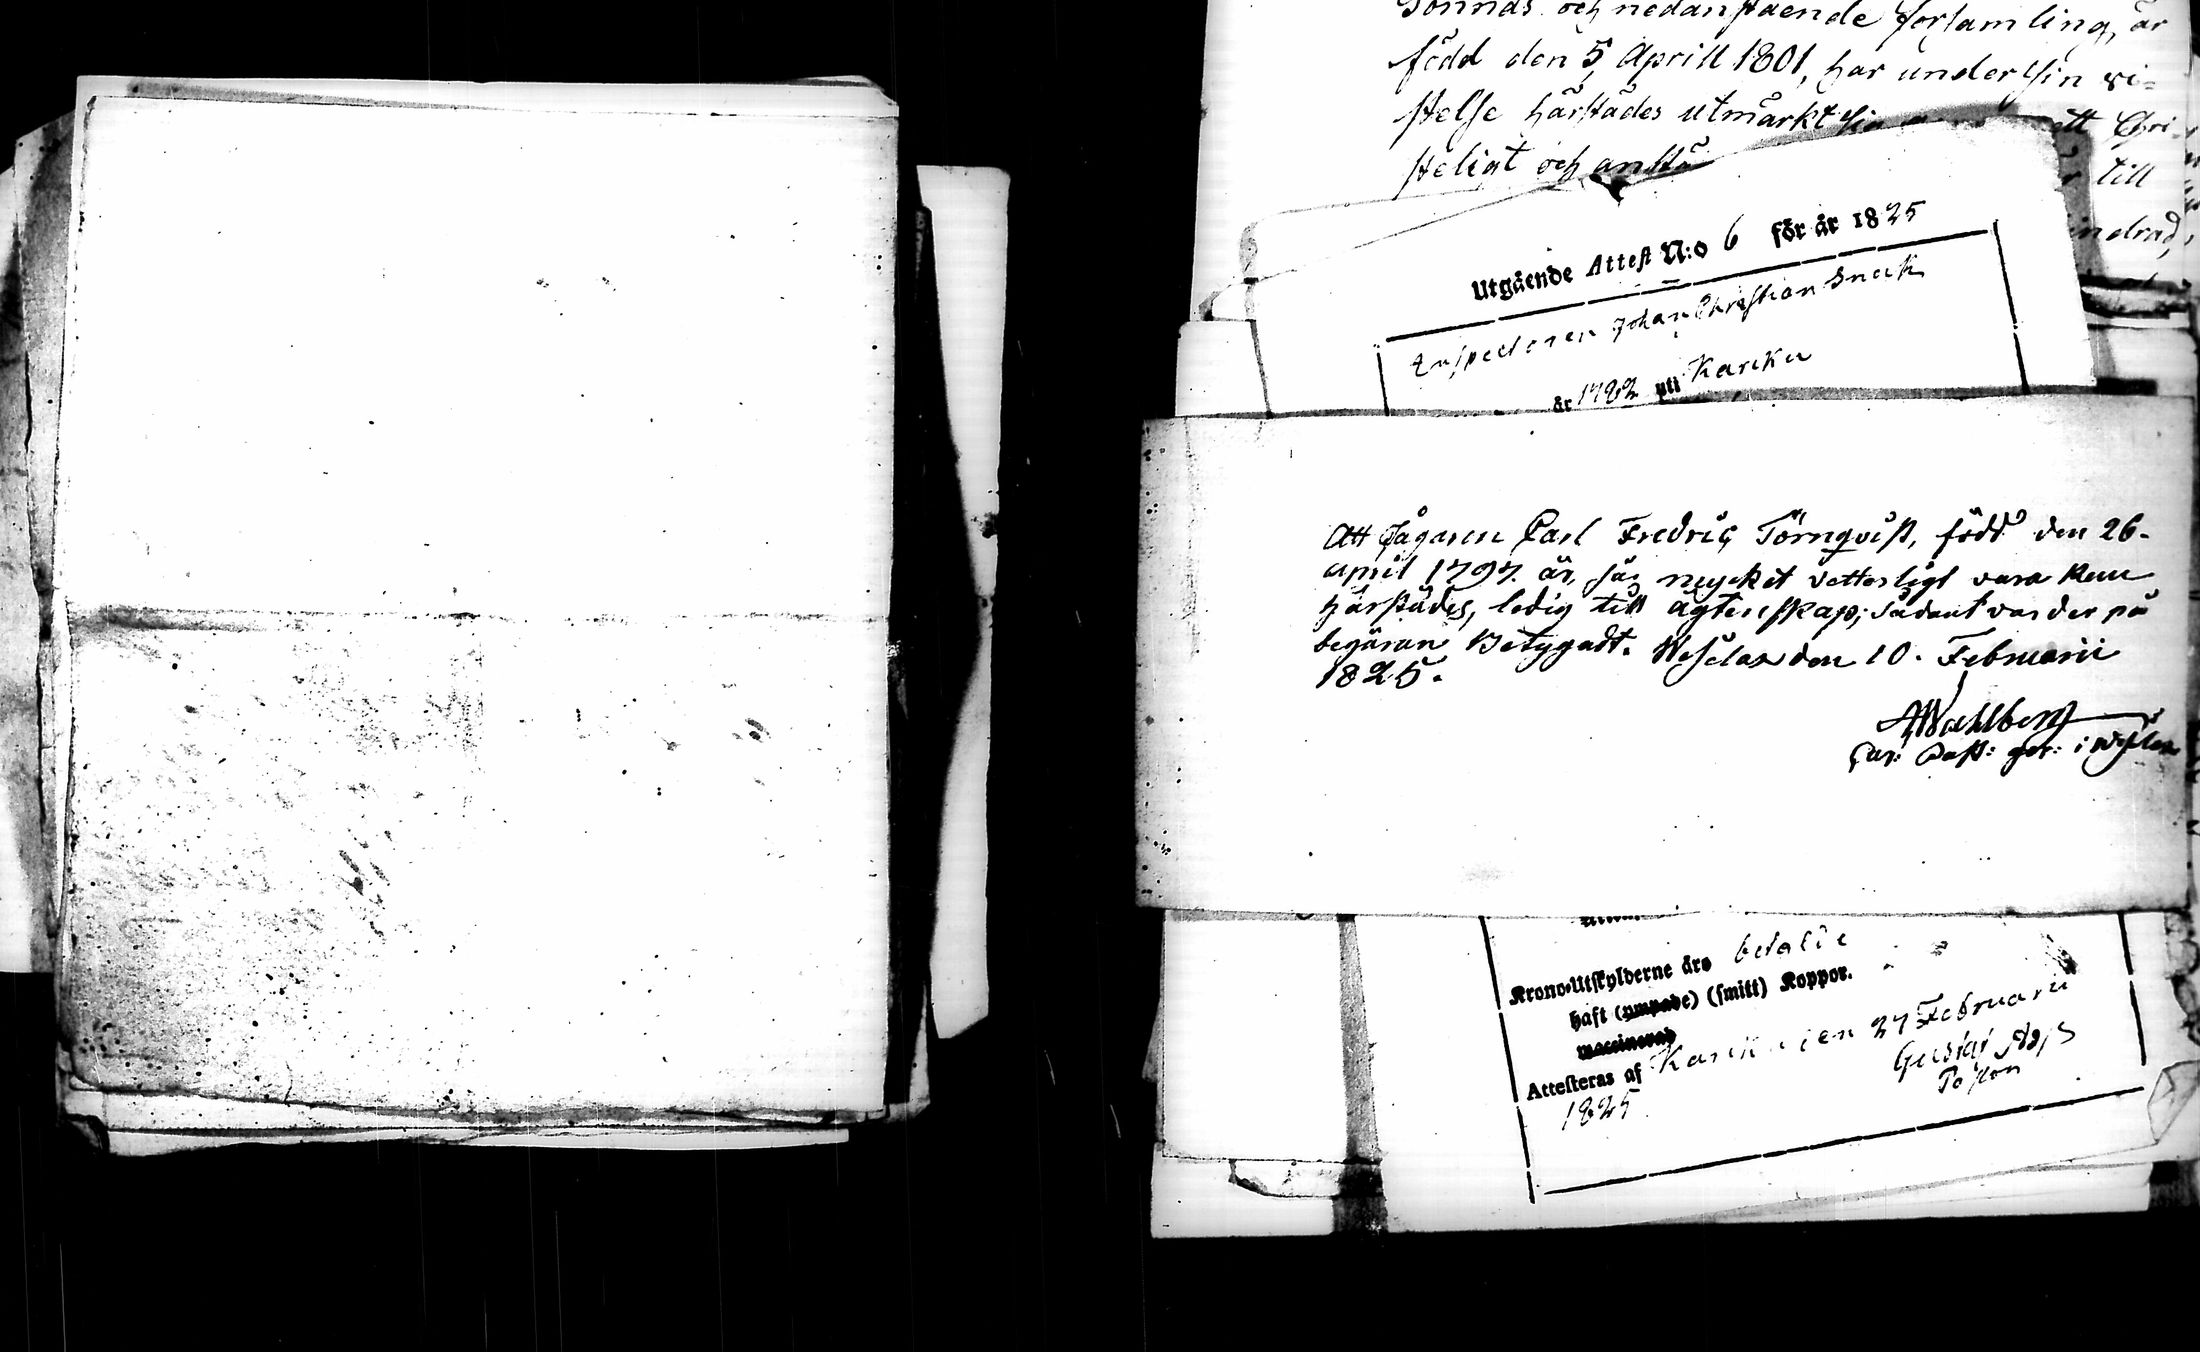 och nedanstaende forsamling, är
född den 5 Aprill 1801, har under sin vi-
stelse härstädes utmärkt sig ett Chri-
steligt och anstä till
Utgående Attest N:o 6 för år 1825
Inspectoren Johan Christian Snack
år 1782 uti Karcku
Att Jägaren Carl Fredric Törnqvist, född den 26.
april 1797. är, så mycket vetterligt vara kan
härstädes, ledig till ägtenskap; sådant varder på
begäran Betygadt. Wesilax den 10. Februarii
1825.
AWahlberg
Past:
Krono-Utskylderne äro betalte
haft (ympade) (smitt) Koppor.
vaccinerad
Attesteras af Karcku den 27 Februarii
1825 Gustaf
Pastor